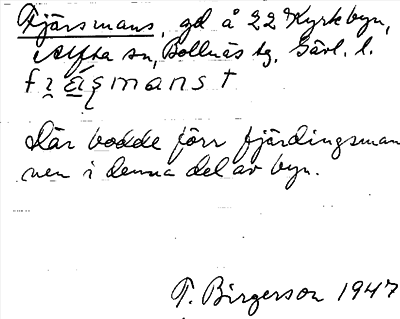 Fjärsmans, gd å 22 Kyrkbyn,
Alfta sn, Bollnäs tg, Gävl. l.
Där bodde förr fjärdingsman
nen i denna del av byn.
T. Birgerson 1947